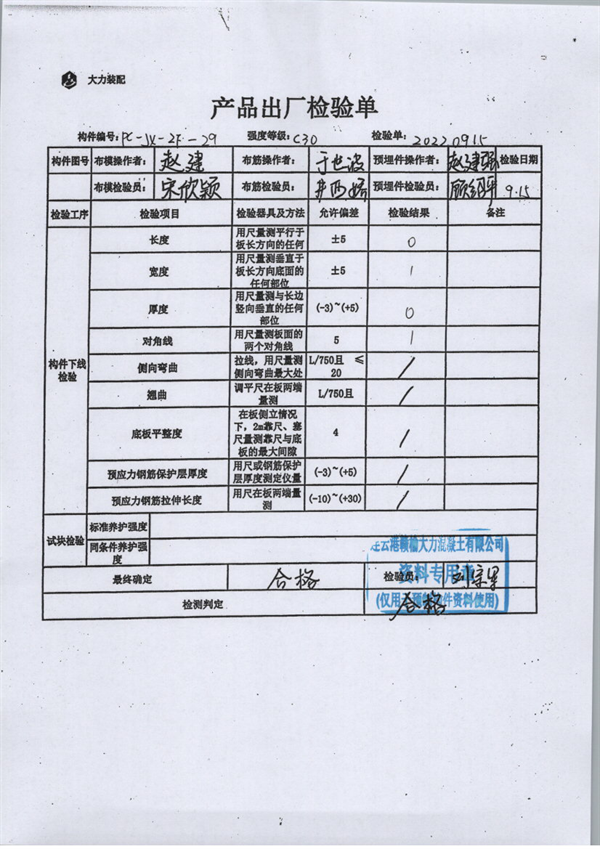 大力装配
产品出厂检验单
构件编号: PC-JX-2F-29 强度等级: C30 检验单: 20220915
构件图号 布模操作者: 赵建 布筋操作者: 预埋件操作者: 赵建强 检验日期
布模检验员: 宋欣颖 布筋检验员: 预埋件检验员: 9.15
检验工序 检验项目 检验器具及方法 允许偏差 检验结果 备注
构件下线检验
长度 用尺量测平行于板长方向的任何 ±5 0
宽度 用尺量测垂直于板长方向底面的任何部位 ±5 1
厚度 用尺量测与长边竖向垂直的任何部位 (-3)~(+5) 0
对角线 用尺量测板面的两个对角线 5 1
侧向弯曲 拉线，用尺量测侧向弯曲最大处 L/750且 ≤20 /
翘曲 调平尺在板两端量测 L/750且 /
底板平整度 在板侧立情况下，2m靠尺、塞尺量测靠尺与底板的最大间隙 4 /
预应力钢筋保护层厚度 用尺或钢筋保护层厚度测定仪量 (-3)~(+5) /
预应力钢筋拉伸长度 用尺在板两端量测 (-10)~(+30) /
试块检验 标准养护强度
同条件养护强度
连云港赣榆大力混凝土有限公司
资料专用章
(仅用于预制构件资料使用)
最终确定 合格 检验员:
检测判定 合格